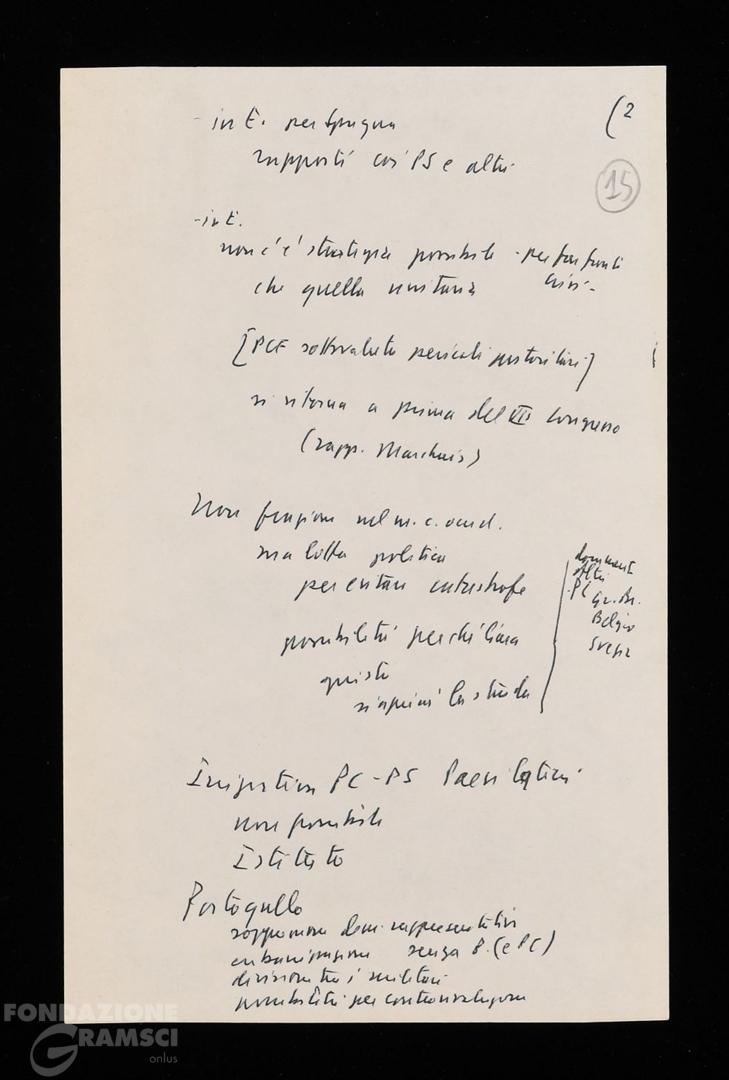 (2
15
- in E. per Spagna
rapporti coi PS e altri
- in E.
non c'è strategia possibile - per far fronte
crisi -
che quella unitaria
[PCF sottovaluta pericoli autoritari]
si ritorna a prima del VII Congresso
(rapp. Marchais)
Non nel m. c. occid.
ma lotta politica
per evitare catastrofe
possibilità perché linea
giusta
si apra la strada
documenti
altri
PC Gr. Br.
Belgio
Svezia
PC - PS Paesi latini
non possibile
Istituto
Portogallo
soppressione dem. rappresentativa
senza P. (e PC)
divisione tra i militari
possibilità per controrivoluzione
FONDAZIONE
GRAMSCI
onlus